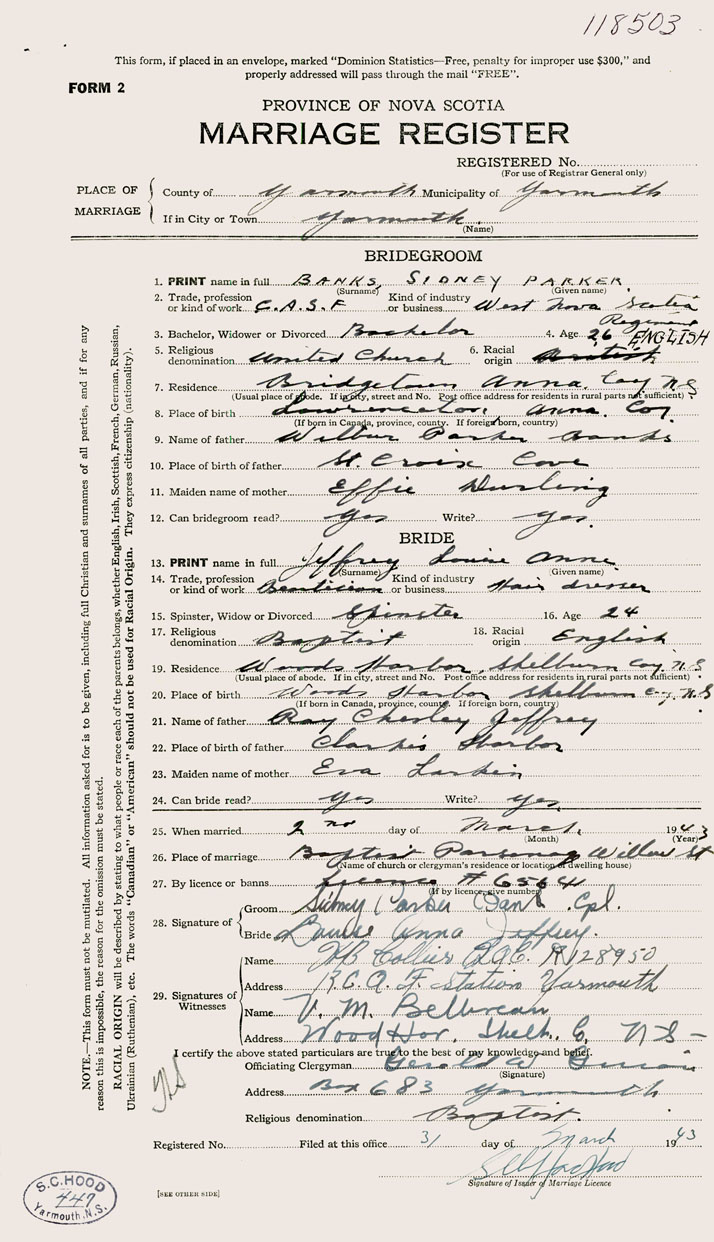 118503
This form, if placed in an envelope, marked "Dominion Statistics—Free, penalty for improper use $300," and
properly addressed will pass through the mail "FREE".
FORM 2
PROVINCE OF NOVA SCOTIA
MARRIAGE REGISTER
REGISTERED No.
(For use of Registrar General only)
PLACE OF MARRIAGE
County of Yarmouth Municipality of Yarmouth
If in City or Town Yarmouth
(Name)
BRIDEGROOM
1. PRINT name in full BANKS, SIDNEY PARKER
(Surname) (Given name)
2. Trade, profession or kind of work C.A.S.F Kind of industry or business West Nova Scotia Regiment
3. Bachelor, Widower or Divorced Bachelor 4. Age 26
5. Religious denomination United Church 6. Racial origin ENGLISH
7. Residence Bridgetown Anna. Coy N.S
(Usual place of abode. If in city, street and No. Post office address for residents in rural parts not sufficient)
8. Place of birth Lawrencetown, Anna. Coy
(If born in Canada, province, county. If foreign born, country)
9. Name of father Wilbur Parker Banks
10. Place of birth of father St. Croix Cove
11. Maiden name of mother Effie Durling
12. Can bridegroom read? Yes Write? Yes.
BRIDE
13. PRINT name in full Jeffrey Louise Anne
(Surname) (Given name)
14. Trade, profession or kind of work Beautician Kind of industry or business Hair dresser
15. Spinster, Widow or Divorced Spinster 16. Age 24
17. Religious denomination Baptist 18. Racial origin English
19. Residence Woods Harbor, Shelburn Coy N.S
(Usual place of abode. If in city, street and No. Post office address for residents in rural parts not sufficient)
20. Place of birth Woods Harbor Shelburn Coy. N.S
(If born in Canada, province, county. If foreign born, country)
21. Name of father Ray Chesley Jeffrey
22. Place of birth of father Clarks Harbor
23. Maiden name of mother Eva Larkin
24. Can bride read? Yes Write? Yes
25. When married 2nd day of March, 1943
(Month) (Year)
26. Place of marriage Baptist Parsonage Willow St
(Name of church or clergyman's residence or location of dwelling house)
27. By licence or banns Licence # 65641
(If by licence, give number)
28. Signature of
Groom Sidney Parker Banks Cpl.
Bride Louise Anna Jeffrey.
29. Signatures of Witnesses
Name Collier R128950
Address R.C.A.F station Yarmouth
Name V. M.
Address Wood Hbr. Shelb. Co, N S -
I certify the above stated particulars are true to the best of my knowledge and belief.
Officiating Clergyman Gerald W
(Signature)
Address Box 683 Yarmouth
Religious denomination Baptist.
Registered No. Filed at this office 31 day of March 1943
Signature of Issuer of Marriage Licence
[SEE OTHER SIDE]
S.C. HOOD
447
Yarmouth, N.S.
NOTE.—This form must not be mutilated. All information asked for is to be given, including full Christian and surnames of all parties, and if for any
reason this is impossible, the reason for the omission must be stated.
RACIAL ORIGIN will be described by stating to what people or race each of the parents belongs, whether English, Irish, Scottish, French, German, Russian,
Ukrainian (Ruthenian), etc. The words "Canadian" or "American" should not be used for Racial Origin. They express citizenship (nationality).